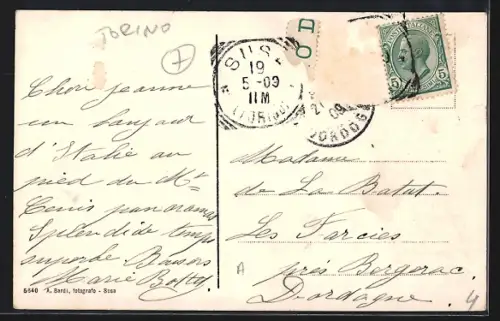 TORINO
7
SUSA
19
5-09
11M
(TORINO)
O D
5
5
21
09
DORDOG
Chère jeanne
un bonjour
d'Italie au
pied du Mt
Cenis panorama
Splendide temps
superbe Baisers
Marie
6640 A. Bardi, fotografo - Susa
Madame
de La Batut
Les Farcies
près Bergerac
Dordogne
A
4